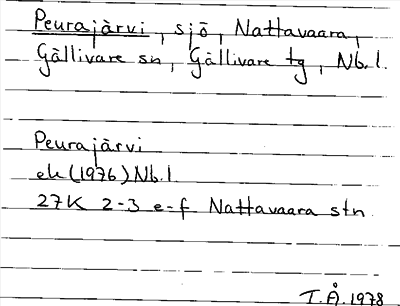 Peurajärvi, sjö, Nattavaara,
Gällivare sn, Gällivare tg, Nb. l.
Peurajärvi
ek (1976) Nb. l
27K 2-3 e-f Nattavaara stn
T.Å. 1978